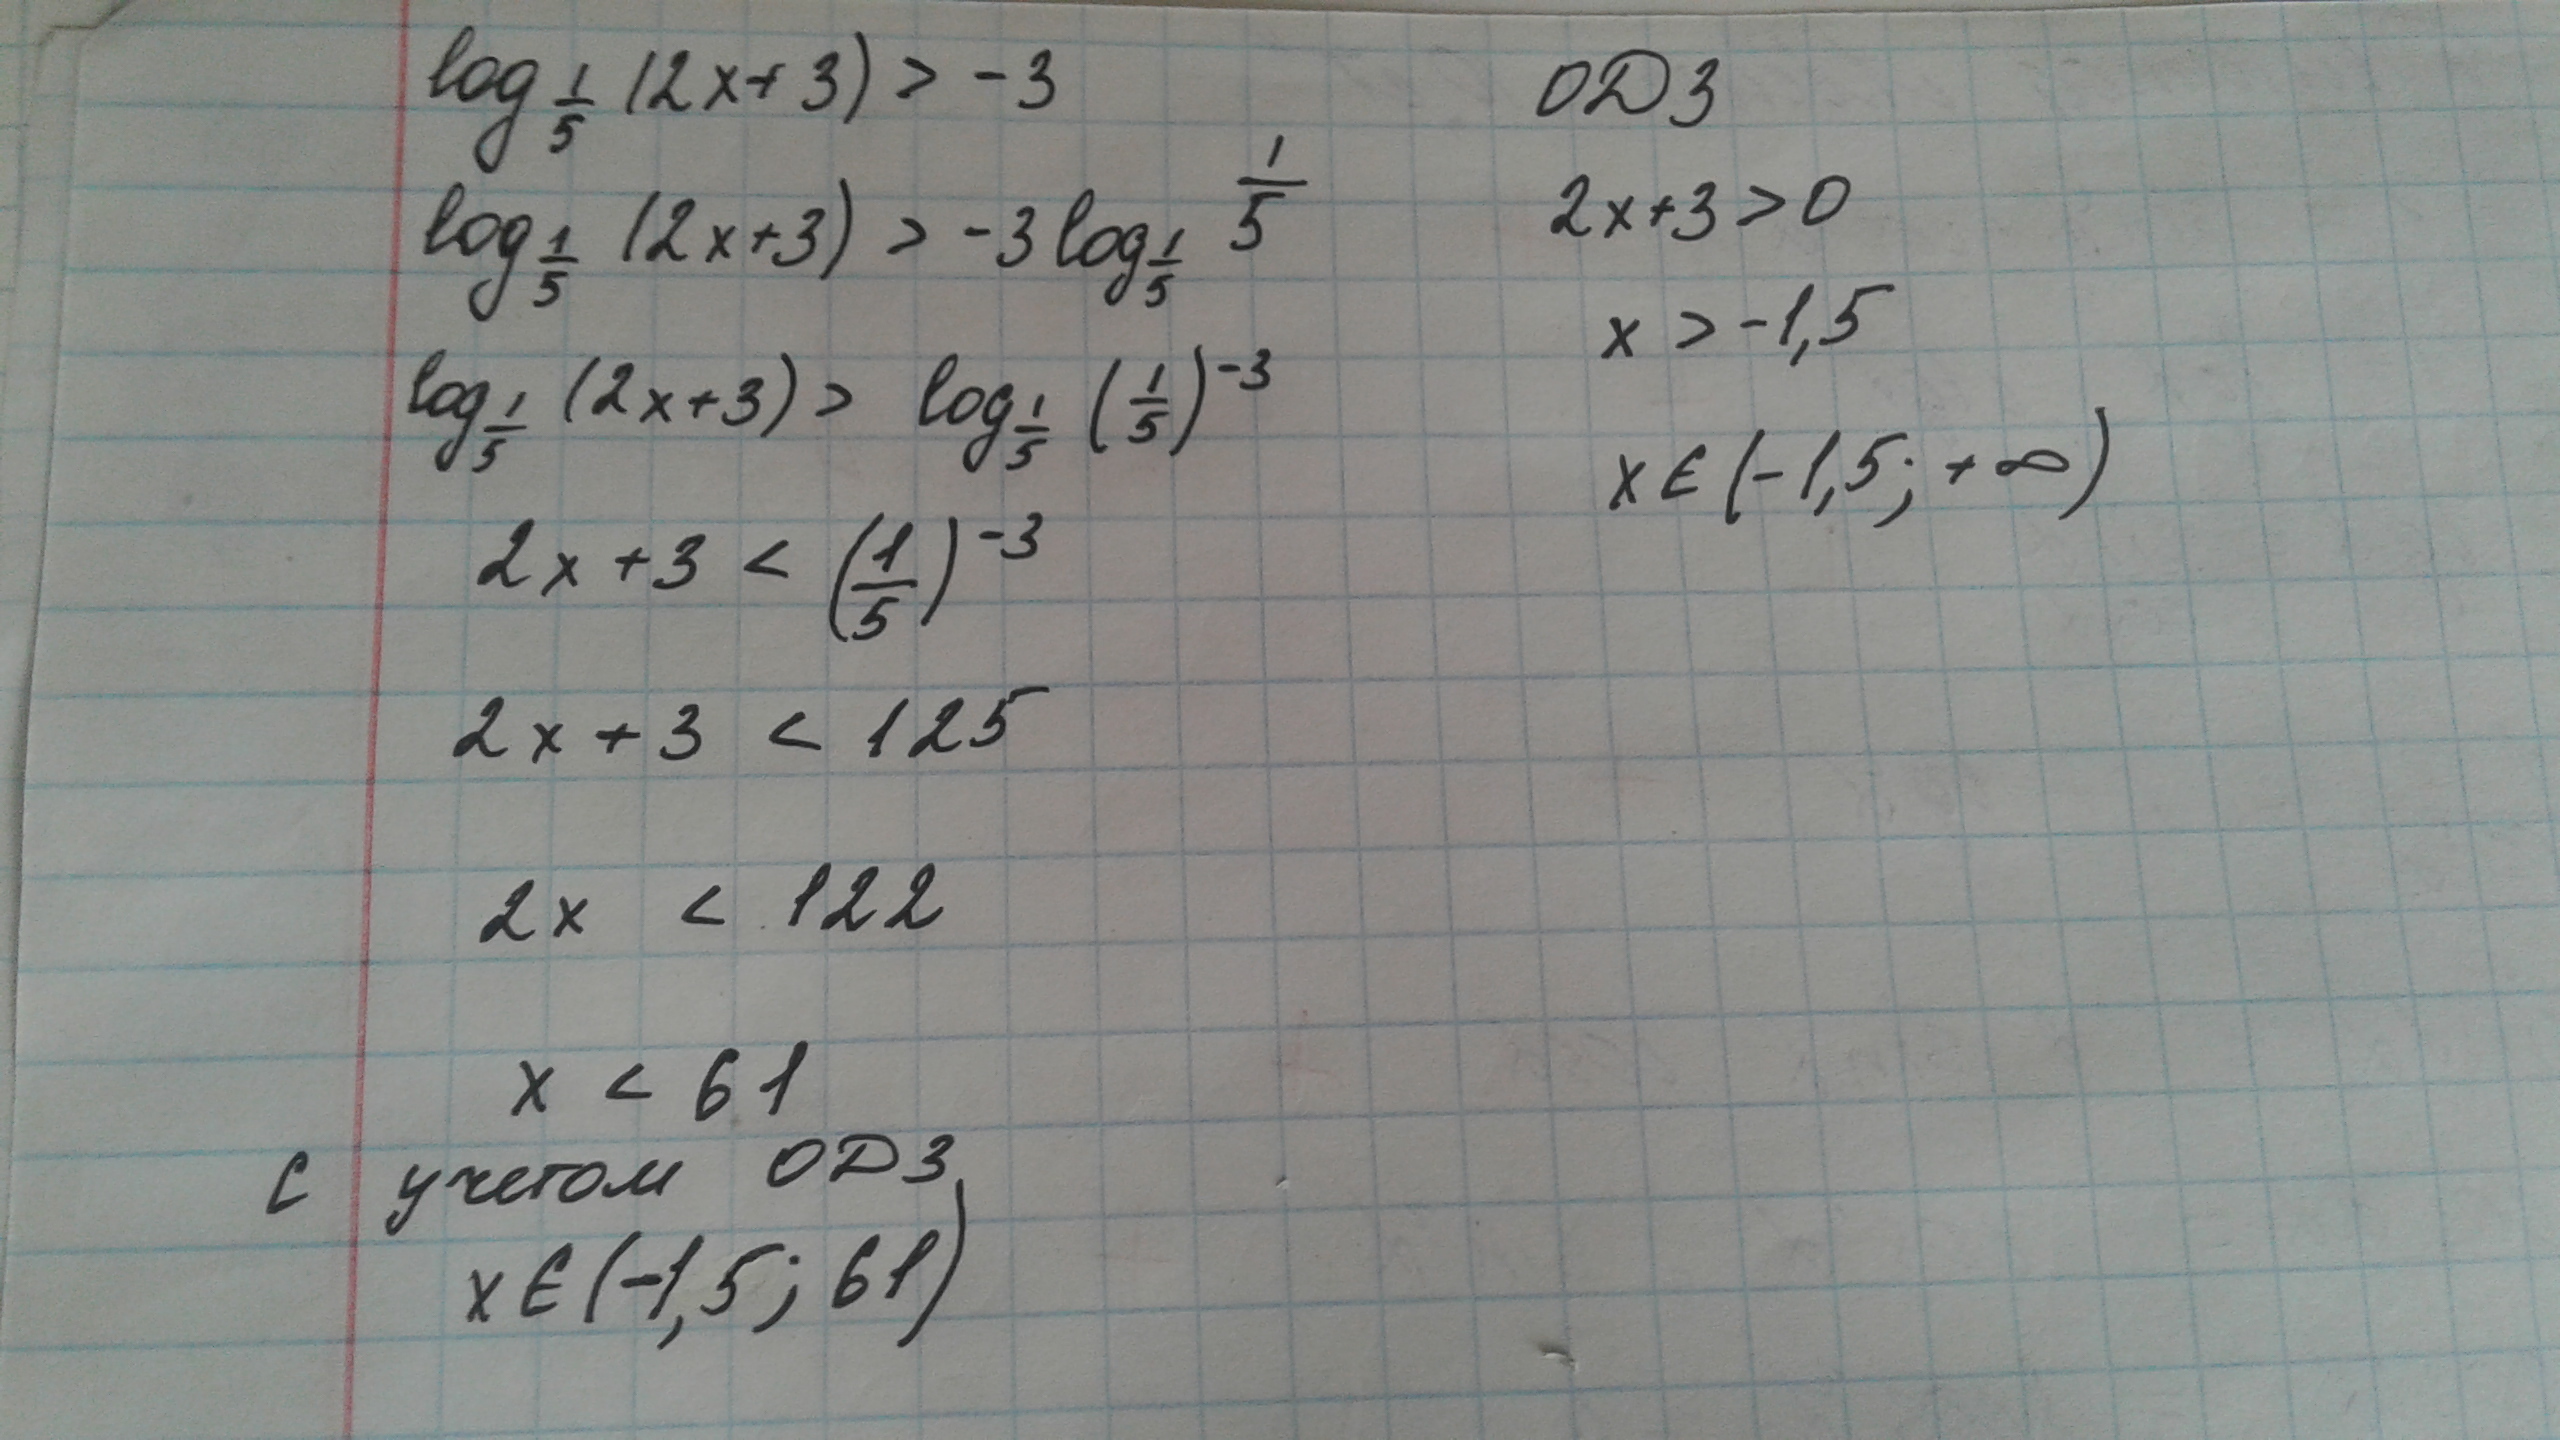 log_{1/5} (2x+3) > -3
log_{1/5} (2x+3) > -3 log_{1/5} 1/5
log_{1/5} (2x+3) > log_{1/5} (1/5)^{-3}
2x+3 < (1/5)^{-3}
2x+3 < 125
2x < 122
x < 61
с учетом ОДЗ
x∈(-1,5; 61)
ОДЗ
2x+3>0
x > -1,5
x∈(-1,5; +∞)